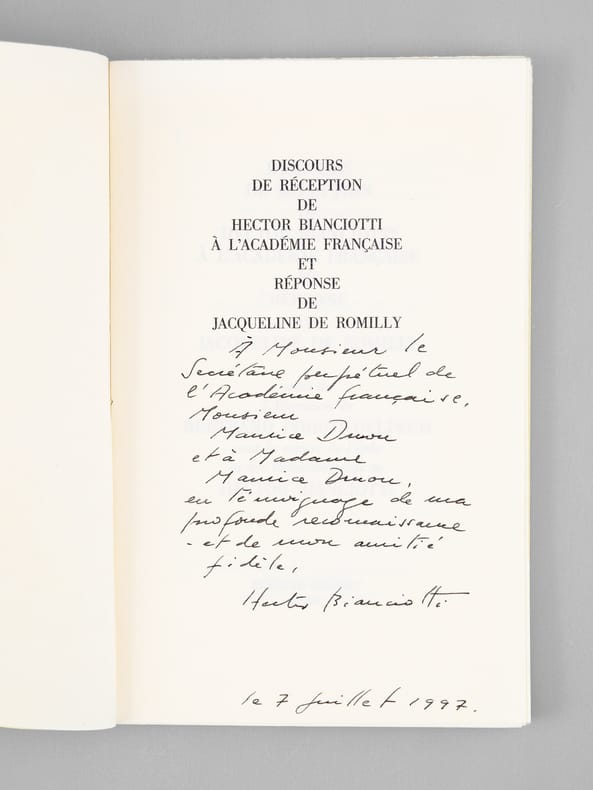 DISCOURS
DE RÉCEPTION
DE
HECTOR BIANCIOTTI
À L'ACADÉMIE FRANÇAISE
ET
RÉPONSE
DE
JACQUELINE DE ROMILLY
À Monsieur le
Secrétaire perpétuel de
l'Académie française,
Monsieur
Maurice Druon
et à Madame
Maurice Druon,
en témoignage de ma
profonde reconnaissance
- et de mon amitié
fidèle,
Hector Bianciotti
le 7 juillet 1997.